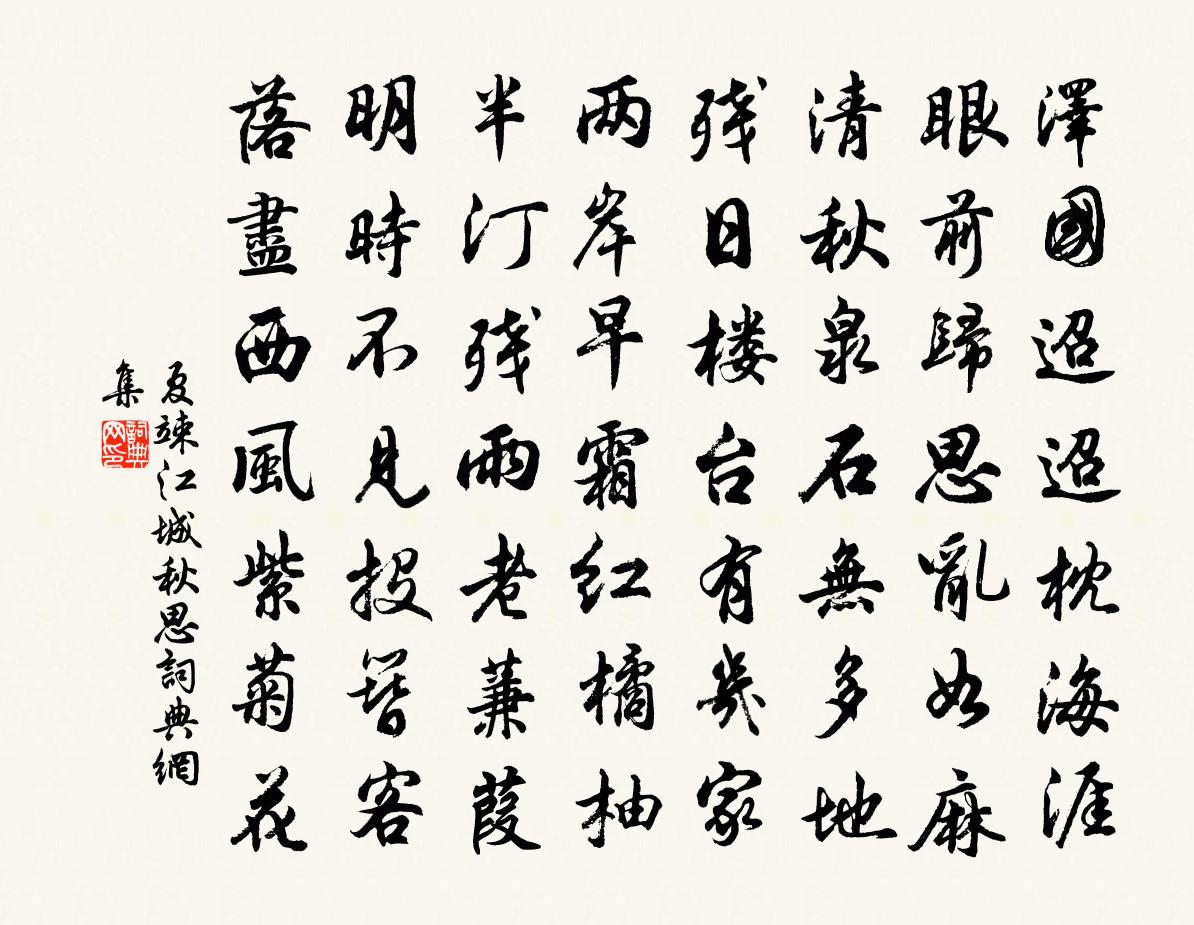 澤國迢迢枕海涯
眼前歸思亂如麻
清秋泉石無多地
残日楼台有幾家
两岸早霜红橘柚
半汀残雨老蒹葭
明時不見投簪客
落盡西風紫菊花
夏竦江城秋思詞典網
集
詞典
网印